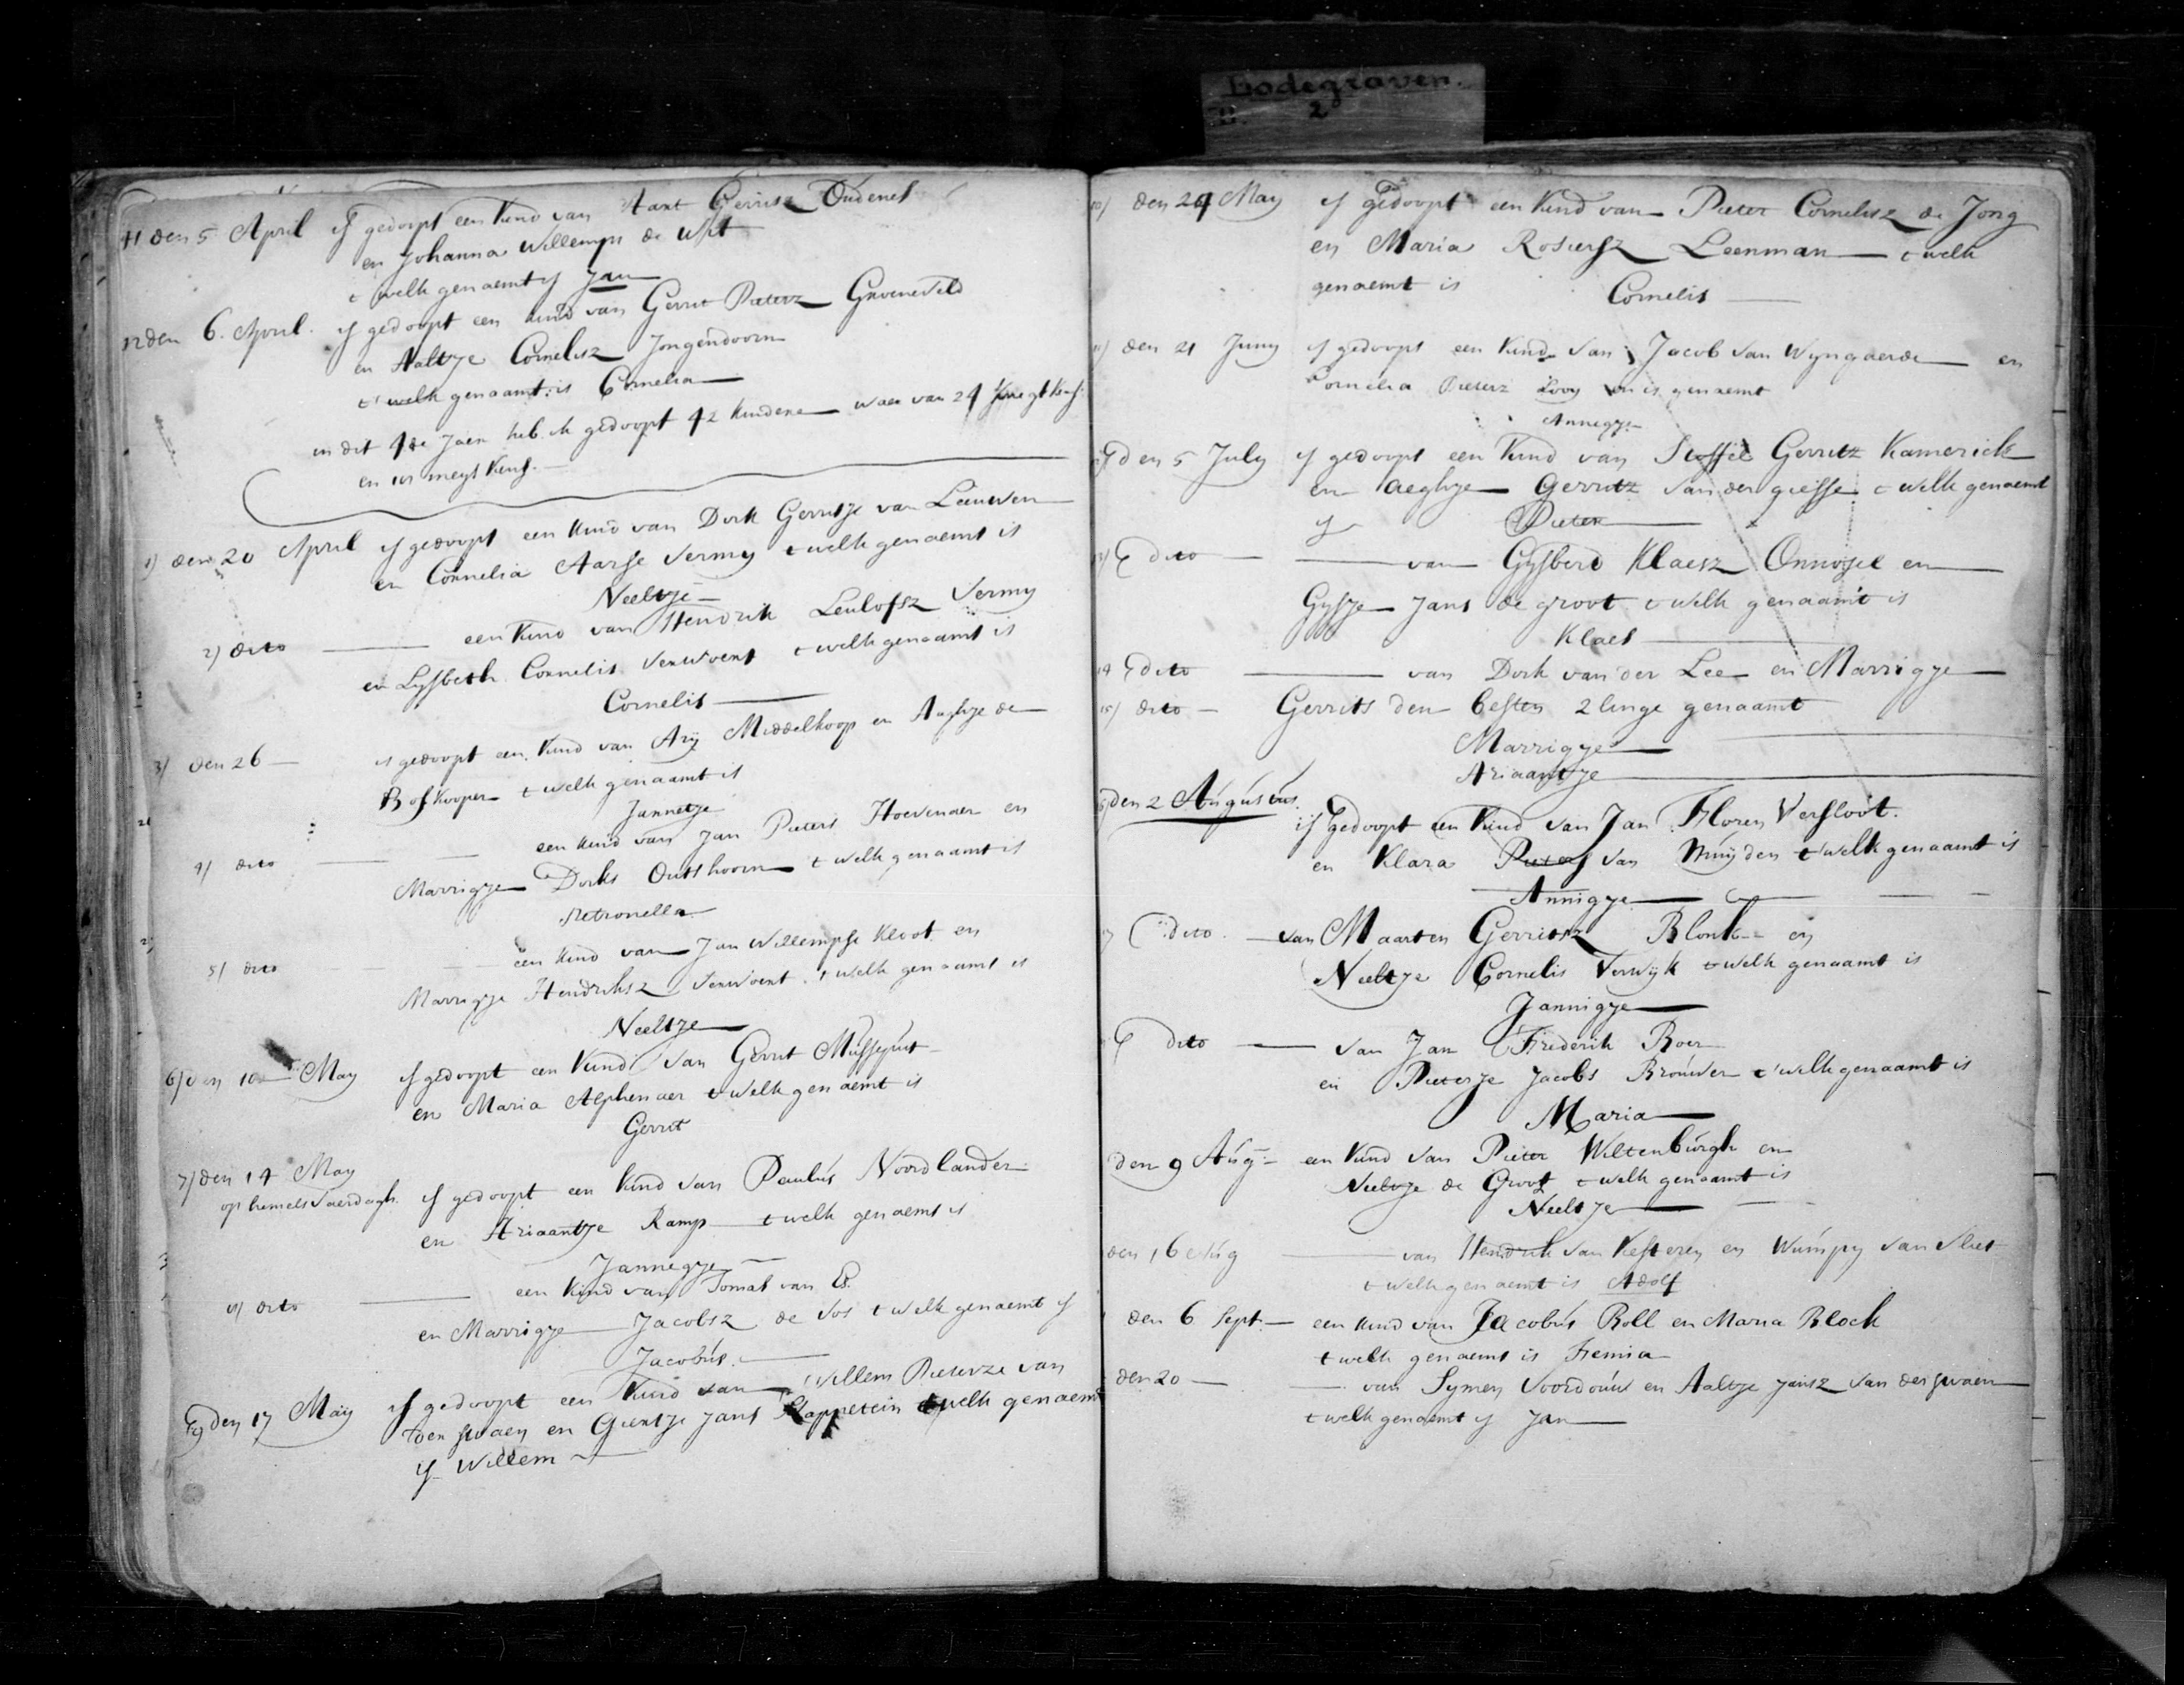 Bodegraven.
B. 2
41 den 5 April is gedoopt een kind van Aart Gerrisz Oudenes
en Johanna Willemps de Wit
t welk genaemt is Jan
42 den 6. April. is gedoopt een kind van Gerrit Pieterz Groeneveld
en Aaltje Cornelisz Jongendoorn
t' welk genaamt is Cornelia
in dit 4de Jaer heb ik gedoopt 42 kindere waer van 24
en 18 meyskens.
1) den 20 April is gedoopt een kind van Dirk Gerritse van Leeuwen
en Cornelia Aarse Vermy t welk genaemt is
Neeltje
2) dito een kind van Hendrik Leulofsz Vermy
en Lysbeth Cornelis Verwoert t welk genaamt is
Cornelis
3) den 26 is gedoopt een kind van Ary Middelkoop en Aeghje de
Boskooper t welk genaamt is
Jannetje
4) dito een kind van Jan Pieters Hoevenaer en
Marrigje Dirks Outshoorn t welk genaamt is
Petronella
5) dito een kind van Jan Willempse Kloot en
Marrigje Hendriksz Verwoert t welk genaamt is
Neeltje
6) den 10 May is gedoopt een kind van Gerrit
en Maria Alphenaer t welk genaemt is
Gerrit
7) den 14 May
op hemelsvaerdagh. is gedoopt een kind van Paulus Noordlander
en Ariaantje Ramp t welk genaemt is
Jannegje
8) dito een kind van Tomas van Es.
en Marrigje Jacobsz de Vos t welk genaemt is
Jacobus.
9 den 17 May is gedoopt een kind van Willem Pieterze van
der swaen en Gientje Jans Kappetein t welk genaemt
is Willem
10) den 24 May is gedoopt een kind van Pieter Cornelisz de Jong
en Maria Rosiersz Leenman t welk
genaemt is Cornelis
11) den 21 Juny is gedoopt een kind van Jacob van Wyngaerde en
Cornelia Pieterz Looy en is genaemt
Annegje
12 den 5 July is gedoopt een kind van Stoffel Gerritz Kamerick
en Aeghje Gerritz van der giesse t welk genaemt
is Pieter
13) dito van Gysberd Klaesz Onnosel en
Gysje Jans de groot t welk genaamt is
Klaes
14 dito van Dirk van der Lee en Marrigje
15) dito Gerrits den besten 2 linge genaamt
Marrigje
Ariaantje
16 den 2 Augustus. is gedoopt een kind van Jan Floren Versloot.
en Klara Pieters van Muyden t'welk genaamt is
Annigje
17 dito van Maarten Gerritsz Blonk en
Neeltje Cornelis Verwijk t welk genaamt is
Jannigje
dito van Jan Frederik Boer
en Pieterje Jacobs Brouwer t'welk genaamt is
Maria
den 9 Aug een kind van Pieter Wiltenburgh en
Neeltje de Groot t welk genaamt is
Neeltje
den 16 Aug van Hendrik van Kesteren en Wumpy van vliet
t welk genaemt is Adolf
den 6 Sept. een kind van Jacobus Boll en Maria Block
t welk genaemt is Femia
den 20 van Symen Voordouw en Aaltje Jansz van der swaen
t welk genaemt is Jan